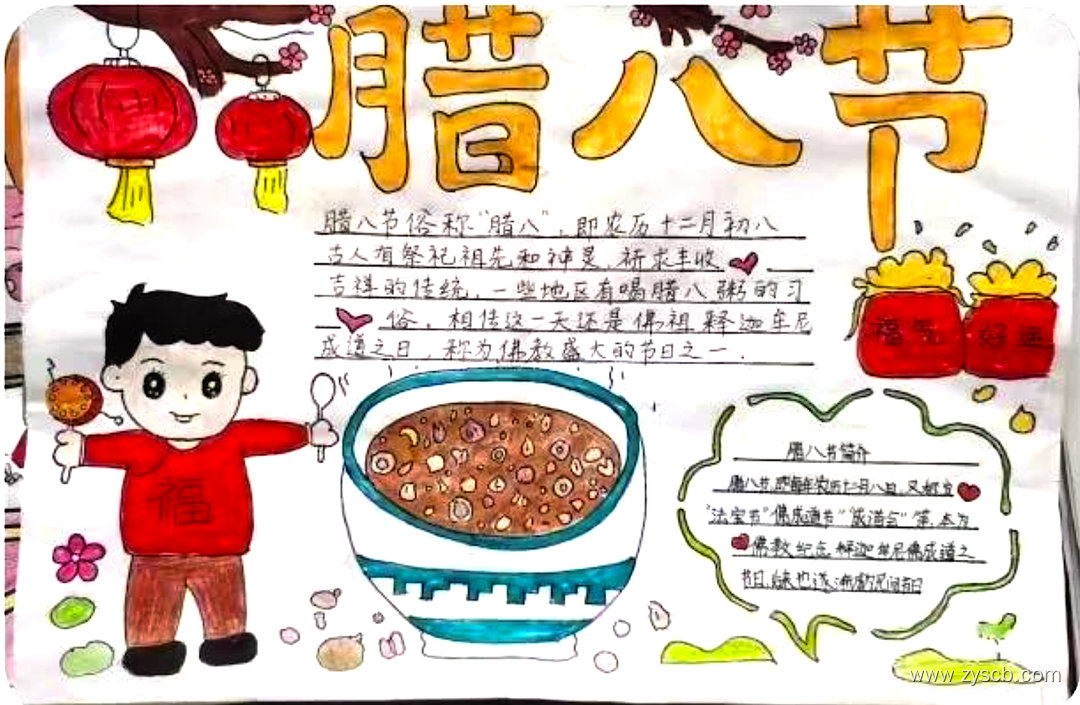 腊八节
腊八节俗称“腊八”，即农历十二月初八
古人有祭祀祖先和神灵、祈求丰收
吉祥的传统，一些地区有喝腊八粥的习
俗，相传这一天还是佛祖释迦牟尼
成道之日，称为佛教盛大的节日之一．
福
福气
好运
腊八节简介
腊八节，即每年农历十二月八日，又称为
“法宝节”“佛成道节”“成道会”等．本为
佛教纪念释迦牟尼佛成道之
节日，
也逐
民间节日
www.zyscb.com